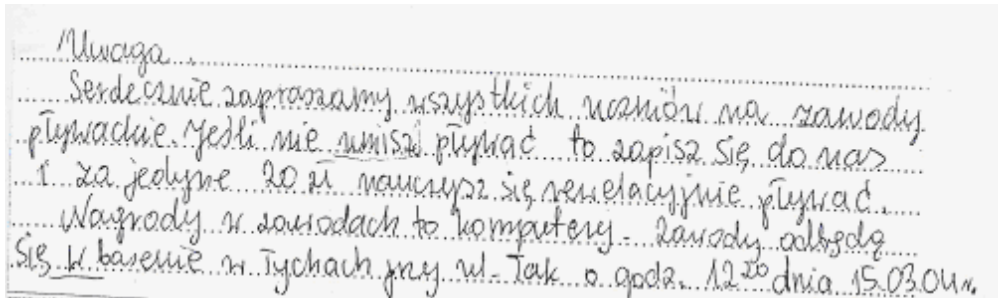 Uwaga.
Serdecznie zapraszamy wszystkich uczniów na zawody
pływackie. Jeśli nie umisz pływać to zapisz się do nas
i za jedyne 20 zł nauczysz się rewelacyjnie pływać.
Nagrody w zawodach to komputery. Zawody odbędą
się w basenie w Tychach przy ul. Tak o godz. 12⁰⁰ dnia 15.03.04r.